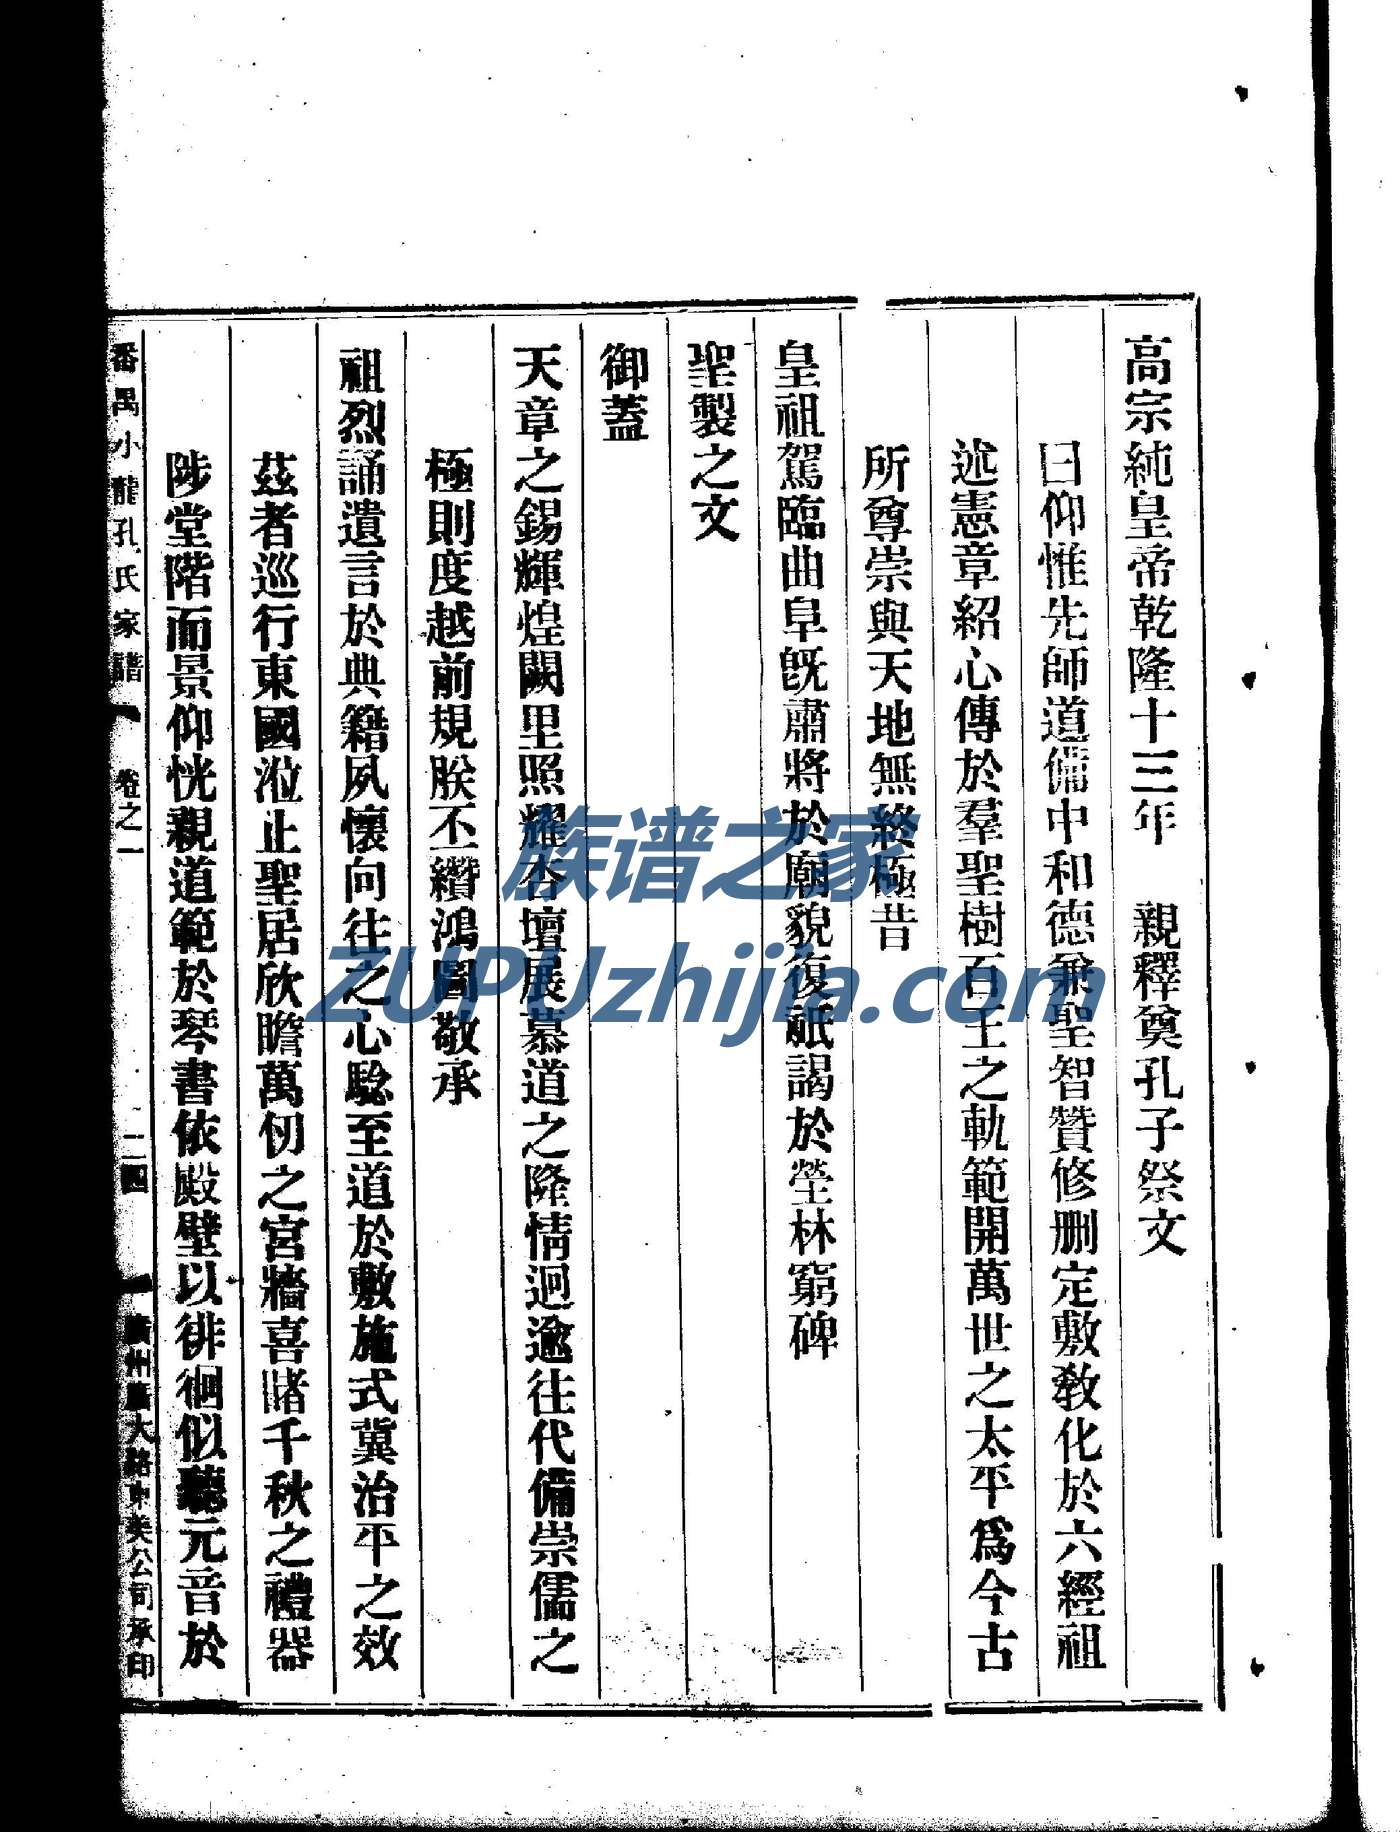 高宗純皇帝乾隆十三年　親釋奠孔子祭文
曰仰惟先師道備中和德兼聖智贊修刪定敷教化於六經祖
述憲章紹心傳於羣聖樹百王之軌範開萬世之太平爲今古
所尊崇與天地無終極昔
皇祖駕臨曲阜旣肅將於廟貌復祇謁於塋林窮碑
聖製之文
御蓋
天章之錫輝煌闕里照耀杏壇展慕道之隆情迥逾往代備崇儒之
極則度越前規朕丕纘鴻圖敬承
祖烈誦遺言於典籍夙懷向往之心騐至道於敷施式冀治平之效
茲者巡行東國涖止聖居欣瞻萬仞之宮牆喜睹千秋之禮器
陟堂階而景仰恍親道範於琴書依殿壁以徘徊似聽元音於
番禺小龍孔氏家譜　卷之一　二四　廣州廱大路東美公司承印
族谱之家
ZUPUzhijia.com